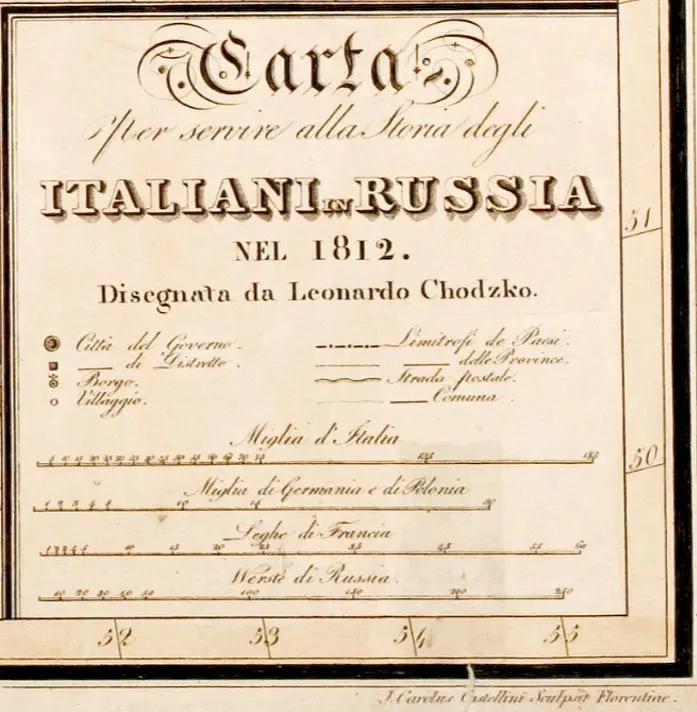 Carta
Per servire alla Storia degli
ITALIANI IN RUSSIA
NEL 1812.
Disegnata da Leonardo Chodzko.
Città del Governo.
___ di Distretto.
Borgo.
Villaggio.
Limitrofi de Paesi.
___ delle Province.
Strada postale.
___ Comuna.
Miglia d'Italia
125 185
Miglia di Germania e di Polonia
Leghe di Francia
1 2 3 4 5 10 15 20 25 35 45 55 60
Werste di Russia.
10 20 30 40 50 100 150 200 250
51
50
52 53 54 55
J. Carolus Castellini Sculpsit Florentiae.